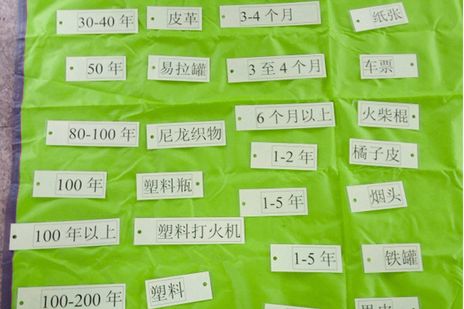 30-40 年 皮革 3-4 个月 纸张
50 年 易拉罐 3 至 4 个月 车票
80-100 年 尼龙织物 6 个月以上 火柴棍
100 年 塑料瓶 1-2 年 橘子皮
100 年以上 塑料打火机 1-5 年 烟头
100-200 年 塑料 1-5 年 铁罐